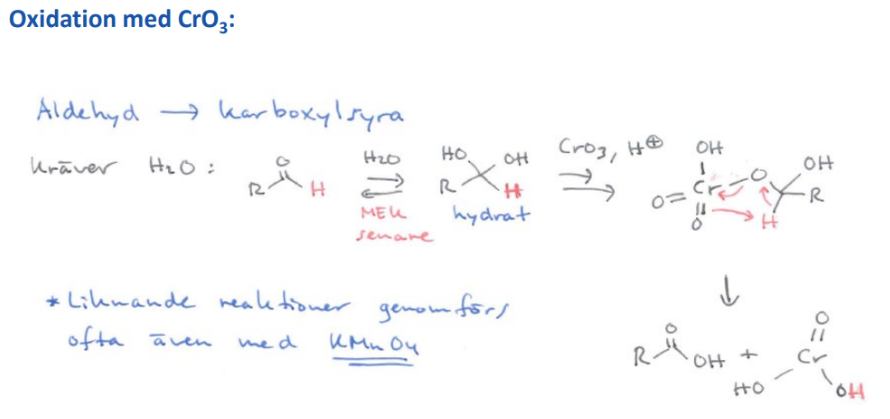 Oxidation med CrO₃:
Aldehyd → karboxylsyra
Kräver H₂O :
O
R H
H₂O
⇌
MEK
senare
HO OH
R H
hydrat
CrO₃, H⊕
OH
O= Cr O OH
O H R
↓
O
R OH + O
Cr
HO OH
* Liknande reaktioner genomförs
ofta även med KMnO₄